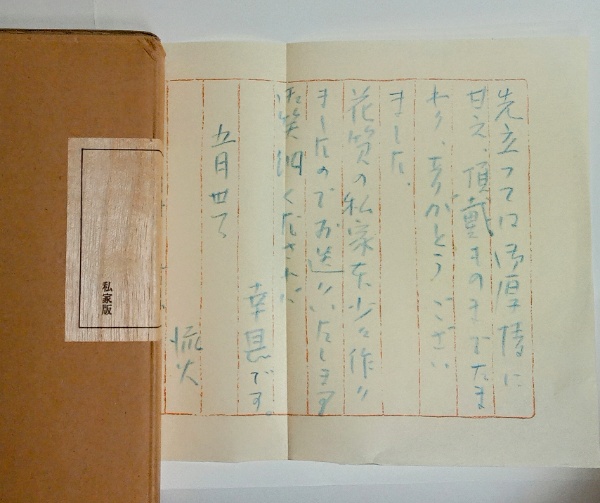 先立っては御厚情に
甘え、頂戴きのまでたま
わり、ありがとうござい
ました、
花質の私家本少々作り
ましたのでお送りいたします
御笑納くだされば
幸甚です。
五月廿
流火
私家版